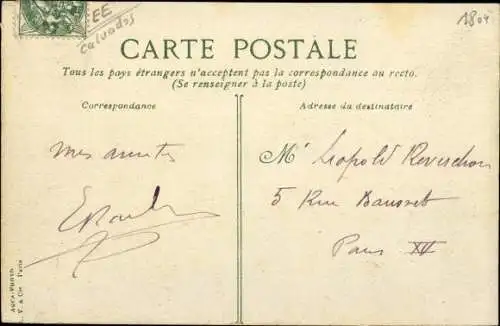 EE
Calvados
1804
CARTE POSTALE
Tous les pays étrangers n'acceptent pas la correspondance au recto.
(Se renseigner à la poste)
Correspondance
Adresse du destinataire
mes amitiés
Mr Léopold Reverchon
5 Rue Dausset
Paris XV
AQUA-PHOTO
L. V. & Cie Paris